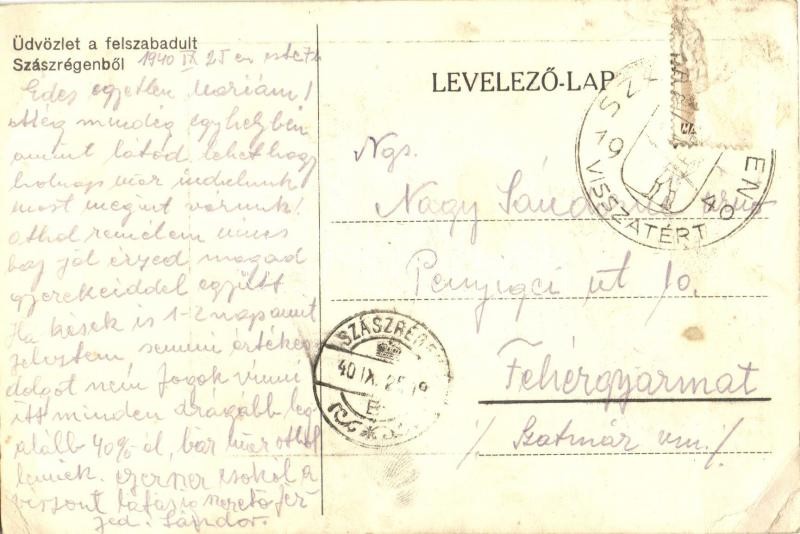 Üdvözlet a felszabadult
Szászrégenből 1940 IX 25 én este 7h
Édes egyetlen Máriám!
Még mindég egyhelyben
amint látod lehet hogy
holnap már indulunk
most megint várunk!
otthol remélem nincs
baj jól érzed magad
gyerekeiddel együtt
Ha kések is 1-2 napot
semmi értékes
dolgot nem fogok vinni
itt minden drágább leg
alább 40%-al, bár már othol
lennék. ezerszer csókol a
viszont látásig szerető fér
jed. Sándor.
LEVELEZŐ-LAP
Ngs.
Nagy Sándor
Penyigei út 10.
Fehérgyarmat
/ Szatmár vm. /
19 40
VISSZATÉRT
SZÁSZRÉGEN
40 IX. 25